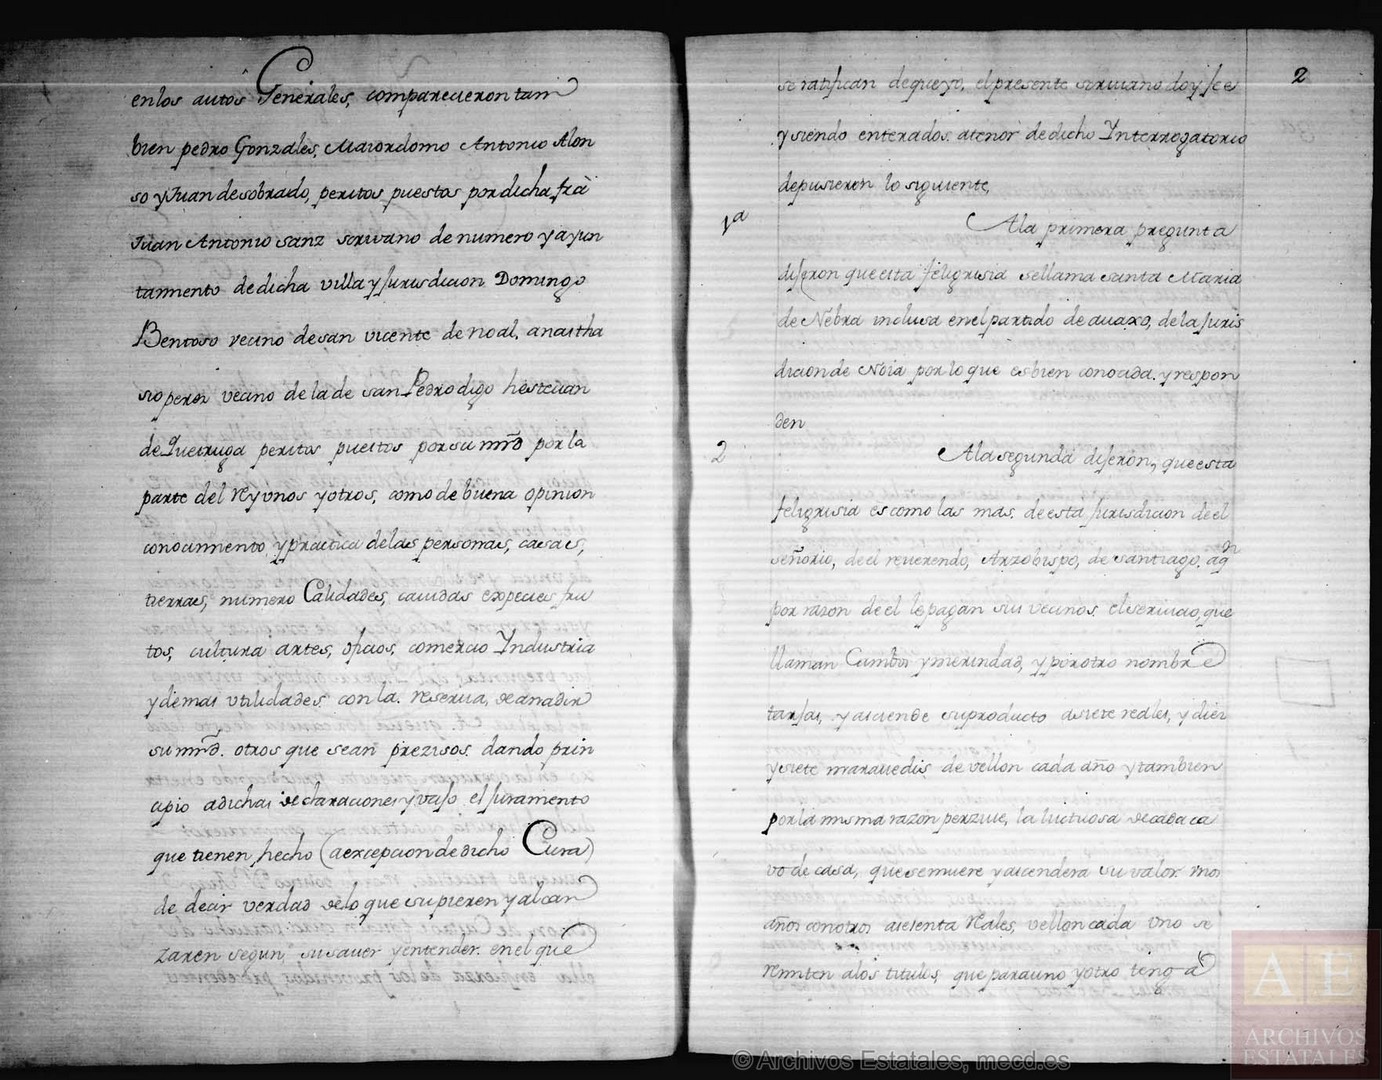 en los autos Generales, comparecieron tam
bien pedro Gonzales, Maiordomo Antonio Alon
so y Juan de sobrado, peritos puestos por dicha fra
Juan Antonio sanz scrivano de numero y ayun
tamiento de dicha villa y Jurisdicion Domingo
Bentoso vecino de san vicente de noal, anastha
sio perez vecino de la de san Pedro digo hestevan
de Queiruga peritos puestos por su mrd por la
parte del rey unos y otros, como de buena opinion
conocimiento y practica de las personas, casas,
tierras, numero Calidades, cavidas expecies fru
tos, cultura artes, oficios, comercio Yndustria
y demas utilidades con la reserva, de anadir
su mrd. otros que sean prezisos. dando prin
cipio a dichas declaraciones y vajo el Juramento
que tienen hecho (a excepcion de dicho Cura)
de decir verdad de lo que supieren y alcan
zaren segun, su saver y entender. en el que
2
se ratifican de que yo, el presente scrivano doy fee
y siendo enterados. atenor de dicho Ynterrogatorio
depusieron lo siguiente,
1a
A la primera pregunta
dijeron que esta feligrisia se llama santa Maria
de Nebra inclusa en el partido de auaxo, de la Juris
dicion de Noia por lo que es bien conocida. y respon
den
2
A la segunda dijeron, que esta
feligrisia es como las mas. de esta Jurisdicion de el
señorio, de el reverendo, Arzobispo, de santiago, aqn
por razon de el le pagan sus vecinos. el servicio, que
llaman y merindad, y por otro nombre
tarjas, y asciende su producto a siete reales, y diez
y siete maravedis de vellon cada año y tambien
por la misma razon perzive, la luctuosa de cada ca
vo de casa, que se muere y ascendera su valor unos
años con otros a setenta reales, vellon cada uno se
remiten a los titulos, que para uno y otro tenga
© Archivos Estatales, mecd.es
AE
ARCHIVOS
ESTATALES